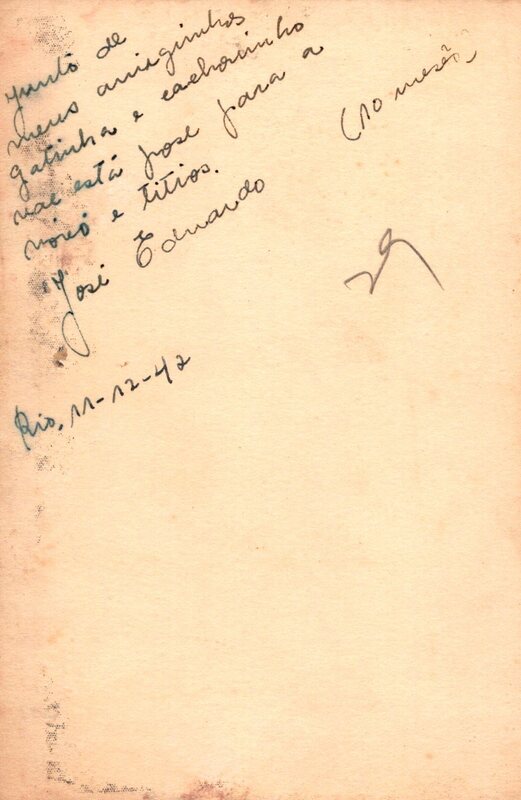 Junto de
meus amiguinhos
gatinha e cachorrinho
vae está pose para a
vóvó e titios.
José Eduardo
(10 meses
Rio, 11-12-42